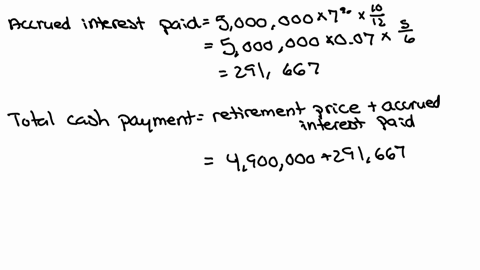 Accrued interest paid = 5,000,000 * 7% * 10/12
= 5,000,000 * 0.07 * 5/6
= 291,667
Total cash payment = retirement price + accrued interest paid
= 4,900,000 + 291,667